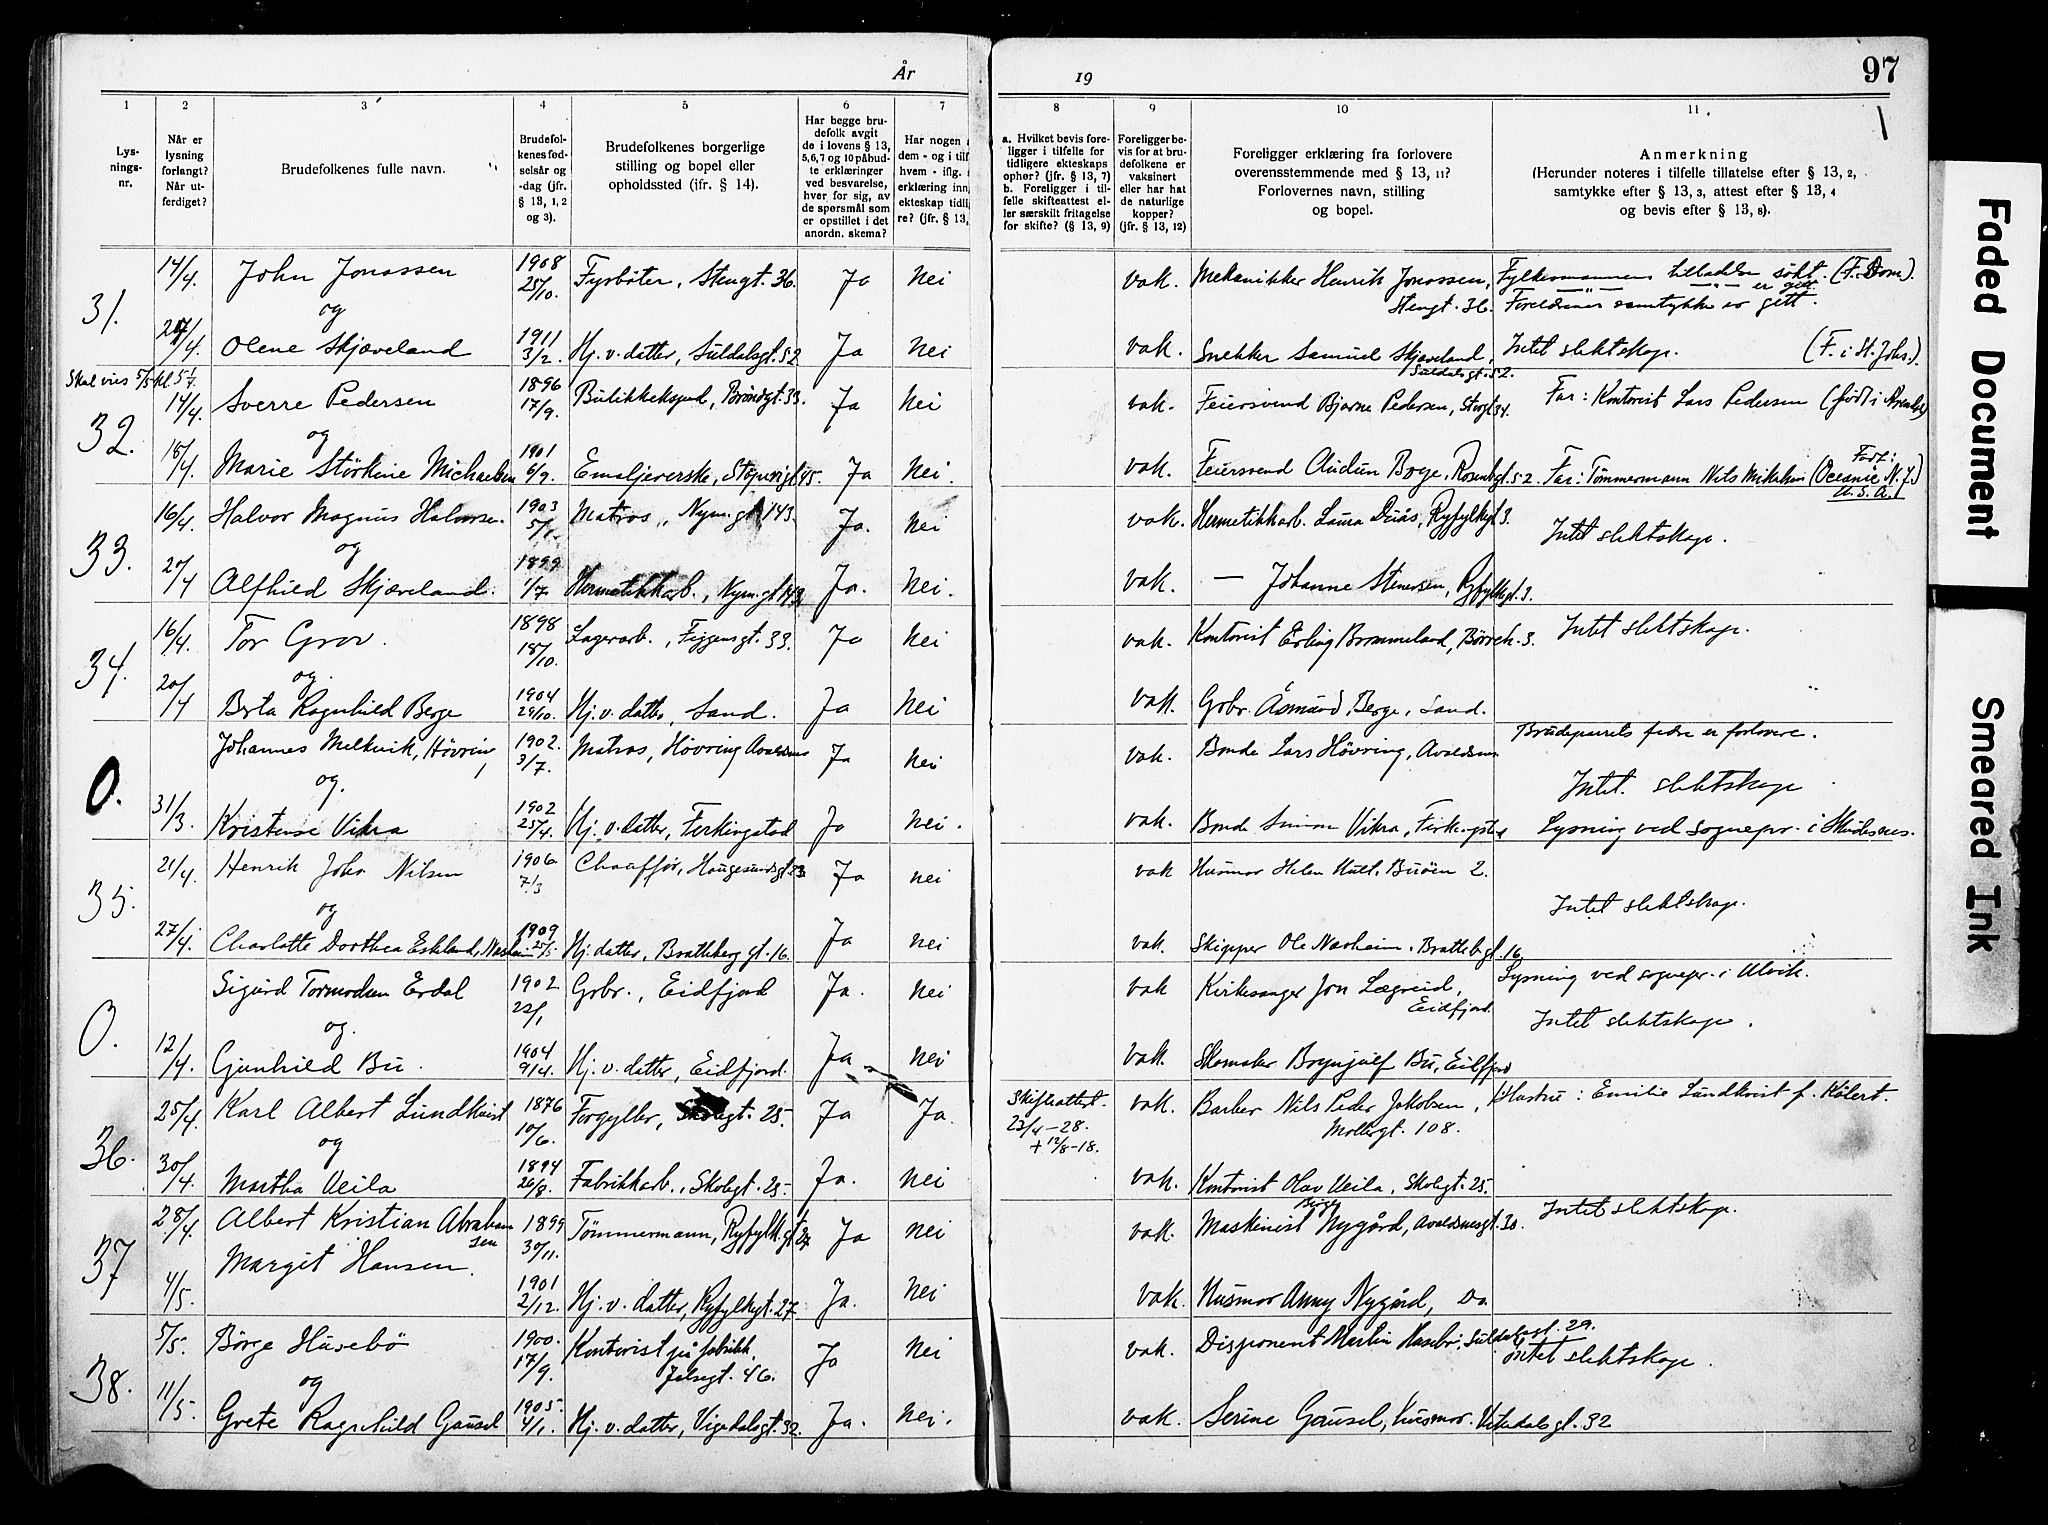 År 19
97
1 2 3 4 5 6 7 8 9 10 11
Lysningsnr.
Når er lysning forlangt? Når utferdiget?
Brudefolkenes fulle navn.
Brudefolkenes fødselsår og -dag (jfr. § 13, 1, 2 og 3).
Brudefolkenes borgerlige stilling og bopel eller opholdssted (ifr. § 14).
Har begge brudefolk avgit de i lovens § 13, 5, 6, 7 og 10 påbudte erklæringer ved besvarelse, hver for sig, av de spørsmål som er opstillet i det anordn. skema?
Har nogen dem - og i tilf hvem - iflg. erklæring inn ekteskap tidli re? (jfr. § 13,
a. Hvilket bevis foreligger i tilfelle for tidligere ekteskaps ophør? (jfr. § 13, 7)
b. Foreligger i tilfelle skifteattest eller særskilt fritagelse for skifte? (§ 13, 9)
Foreligger bevis for at brudefolkene er vaksinert eller har hat de naturlige kopper? (jfr. § 13, 12)
Foreligger erklæring fra forlovere overensstemmende med § 13, 11? Forlovernes navn, stilling og bopel.
Anmerkning (Herunder noteres i tilfelle tillatelse efter § 13, 2, samtykke efter § 13, 3, attest efter § 13, 4 og bevis efter § 13, 8).
31. 14/4. John Jonassen 1908 25/10. Fyrbøter, Stengt. 36. Ja Nei vak. Mekanikker Henrik Jonassen, Stengt. 36. Fylkesmannens tilladelse søkt. (F. Dom).
— " — — " — er gitt.
Foreldrenes samtykke er gitt.
og
20/4. Olene Skjæveland 1911 3/2. Hj. v. datter, Suldalsgt. 52 Ja Nei vak. Snekker Samuel Skjæveland, Suldalsgt. 52. Intet slektskap. (F. i St. Joh.).
Skal vies 5/5 kl. 5
32. 14/4. Sverre Pedersen 1896 17/9. Butikkeksped, Brøndgt. 33. Ja Nei vak. Feiersvend Bjarne Pedersen, Far: Kontorist Lars Pedersen
og
18/4. Marie Størkine Michaelsen 1901 6/9. Emaljeverske, Ja Nei. vak. Feiersvend Audun Far: Tømmermann Nils (Oceanic N.J.) U.S.A.
33. 16/4. Halvor Magnus Halvorsen. 1903 5/1. Matros, Nym. gt 143. Ja. Nei vak. Hermetikkarb. Laura Duås, Ryfylkgt 3. Intet slektskap.
og
20/4 Alfhild Skjæveland. 1899 1/7. Hermetikkarb., Nym. gt 143. Ja. Nei. vak. — Johanne Stenersen, Ryfylkgt. 3.
34. 16/4. Tor Grov. 1898 18/10. Lagerarb., Figgensgt. 33. Ja Nei vak. Kontorist Erling Brommeland, 3. Intet slektskap.
og
20/4 Berta Ragnhild Berge 1904 29/10. Hj. v. datter, Sand. Ja Nei vak. Grbr. Åsmund Berge, Sand.
0. Johannes Melkvik, Høvring 1902. 3/7. Matros, Høvring Avaldsnes Ja Nei vak. Bonde Lars Høvring, Avaldsnes Brudeparets fedre er forlovere.
og. Intet slektskap
31/3. Kristense Vikra 1902 25/4. Hj. v. datter, Ferkingstad Ja Nei. vak. Bonde Simon Vikra, Lysning ved sognepr. i Skudesnes.
35. 21/4. Henrik John Nilsen 1906 7/3 Chauffør, Haugesundsgt 23. Ja Nei vak Husmor Helen Hult, Buøen 2.
og Intet slektskap.
27/4. Charlotte Dorthea Eskeland, Næsheim 1909 25/5 Hj. datter, Bratteberg gt. 16. Ja Nei vak. Skipper Ole Næsheim. Brattebgt. 16
0. Sigurd Tormodsen Erdal 1902 22/1 Grbr., Eidfjord Ja. Nei vak Kirkesanger Jon Lægreid, Eidfjord. Lysning ved sognepr. i Ulvik.
og. Intet slektskap.
12/4. Gunhild Bu. 1904 9/4. Hj. v. datter, Eidfjord. Ja Nei vak. Skomaker Brynjulf Bu, Eidfjord
36. 25/4. Karl Albert Lundkvist 1876 10/6. Forgyller, Skolegt. 25. Ja Ja. Skifteattest. 23/4-28. + 12/8-18. vak. Barber Nils Peder Jakobsen, Møllergt. 108. Hustru: Emilie Lundkvist f. Kølert.
og
30/4. Martha Veila 1894 26/8. Fabrikkarb., Skolegt. 25. Ja. Nei vak. Kontorist Olav Veila, Skolegt. 25.
37 28/4. Albert Kristian Abrahamsen 1899 30/11. Tømmermann, Ryfylk. gt 27 Ja Nei vak. Maskinist Birger Nygård, Avaldsnesgt. 30. Intet slektskap.
4/5. Margit Hansen. 1901 2/12. Hj. v. datter, Ryfylkgt. 27 Ja. Nei vak. Husmor Anny Nygård, Do.
38. 5/5. Børge Husebø 1900. 17/9. Kontorist på fabrikk, Jelsegt. 46. Ja Nei vak. Disponent Martin Husebø, Suldalsgt. 29. Intet slektskap.
og
11/5. Grete Ragnhild Gausel 1905. 4/1. Hj. v. datter, Vigedalsgt. 32. Ja. Nei. vak. Serine Gausel, husmor. Vikedalsgt. 32
Faded Document
Smeared Ink